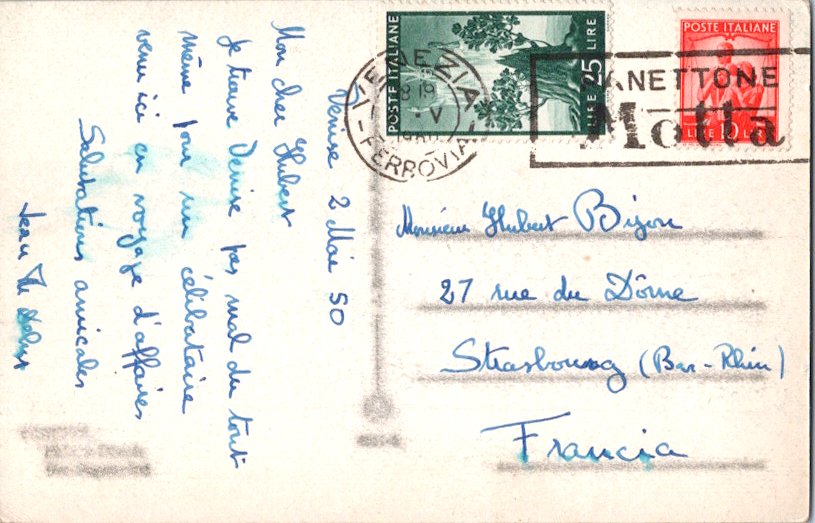 Venise 2 Mai 50
Mon cher Hubert
Je trouve Venise pas mal du tout
même pour un célibataire
venu ici en voyage d'affaires
Salutations amicales
Jean
POSTE ITALIANE
LIRE 25 LIRE
POSTE ITALIANE
LIRE 10 LIRE
VENEZIA
FERROVIA
PANETTONE
Motta
Monsieur Hubert Bijon
27 rue du Dôme
Strasbourg (Bas-Rhin)
Francia